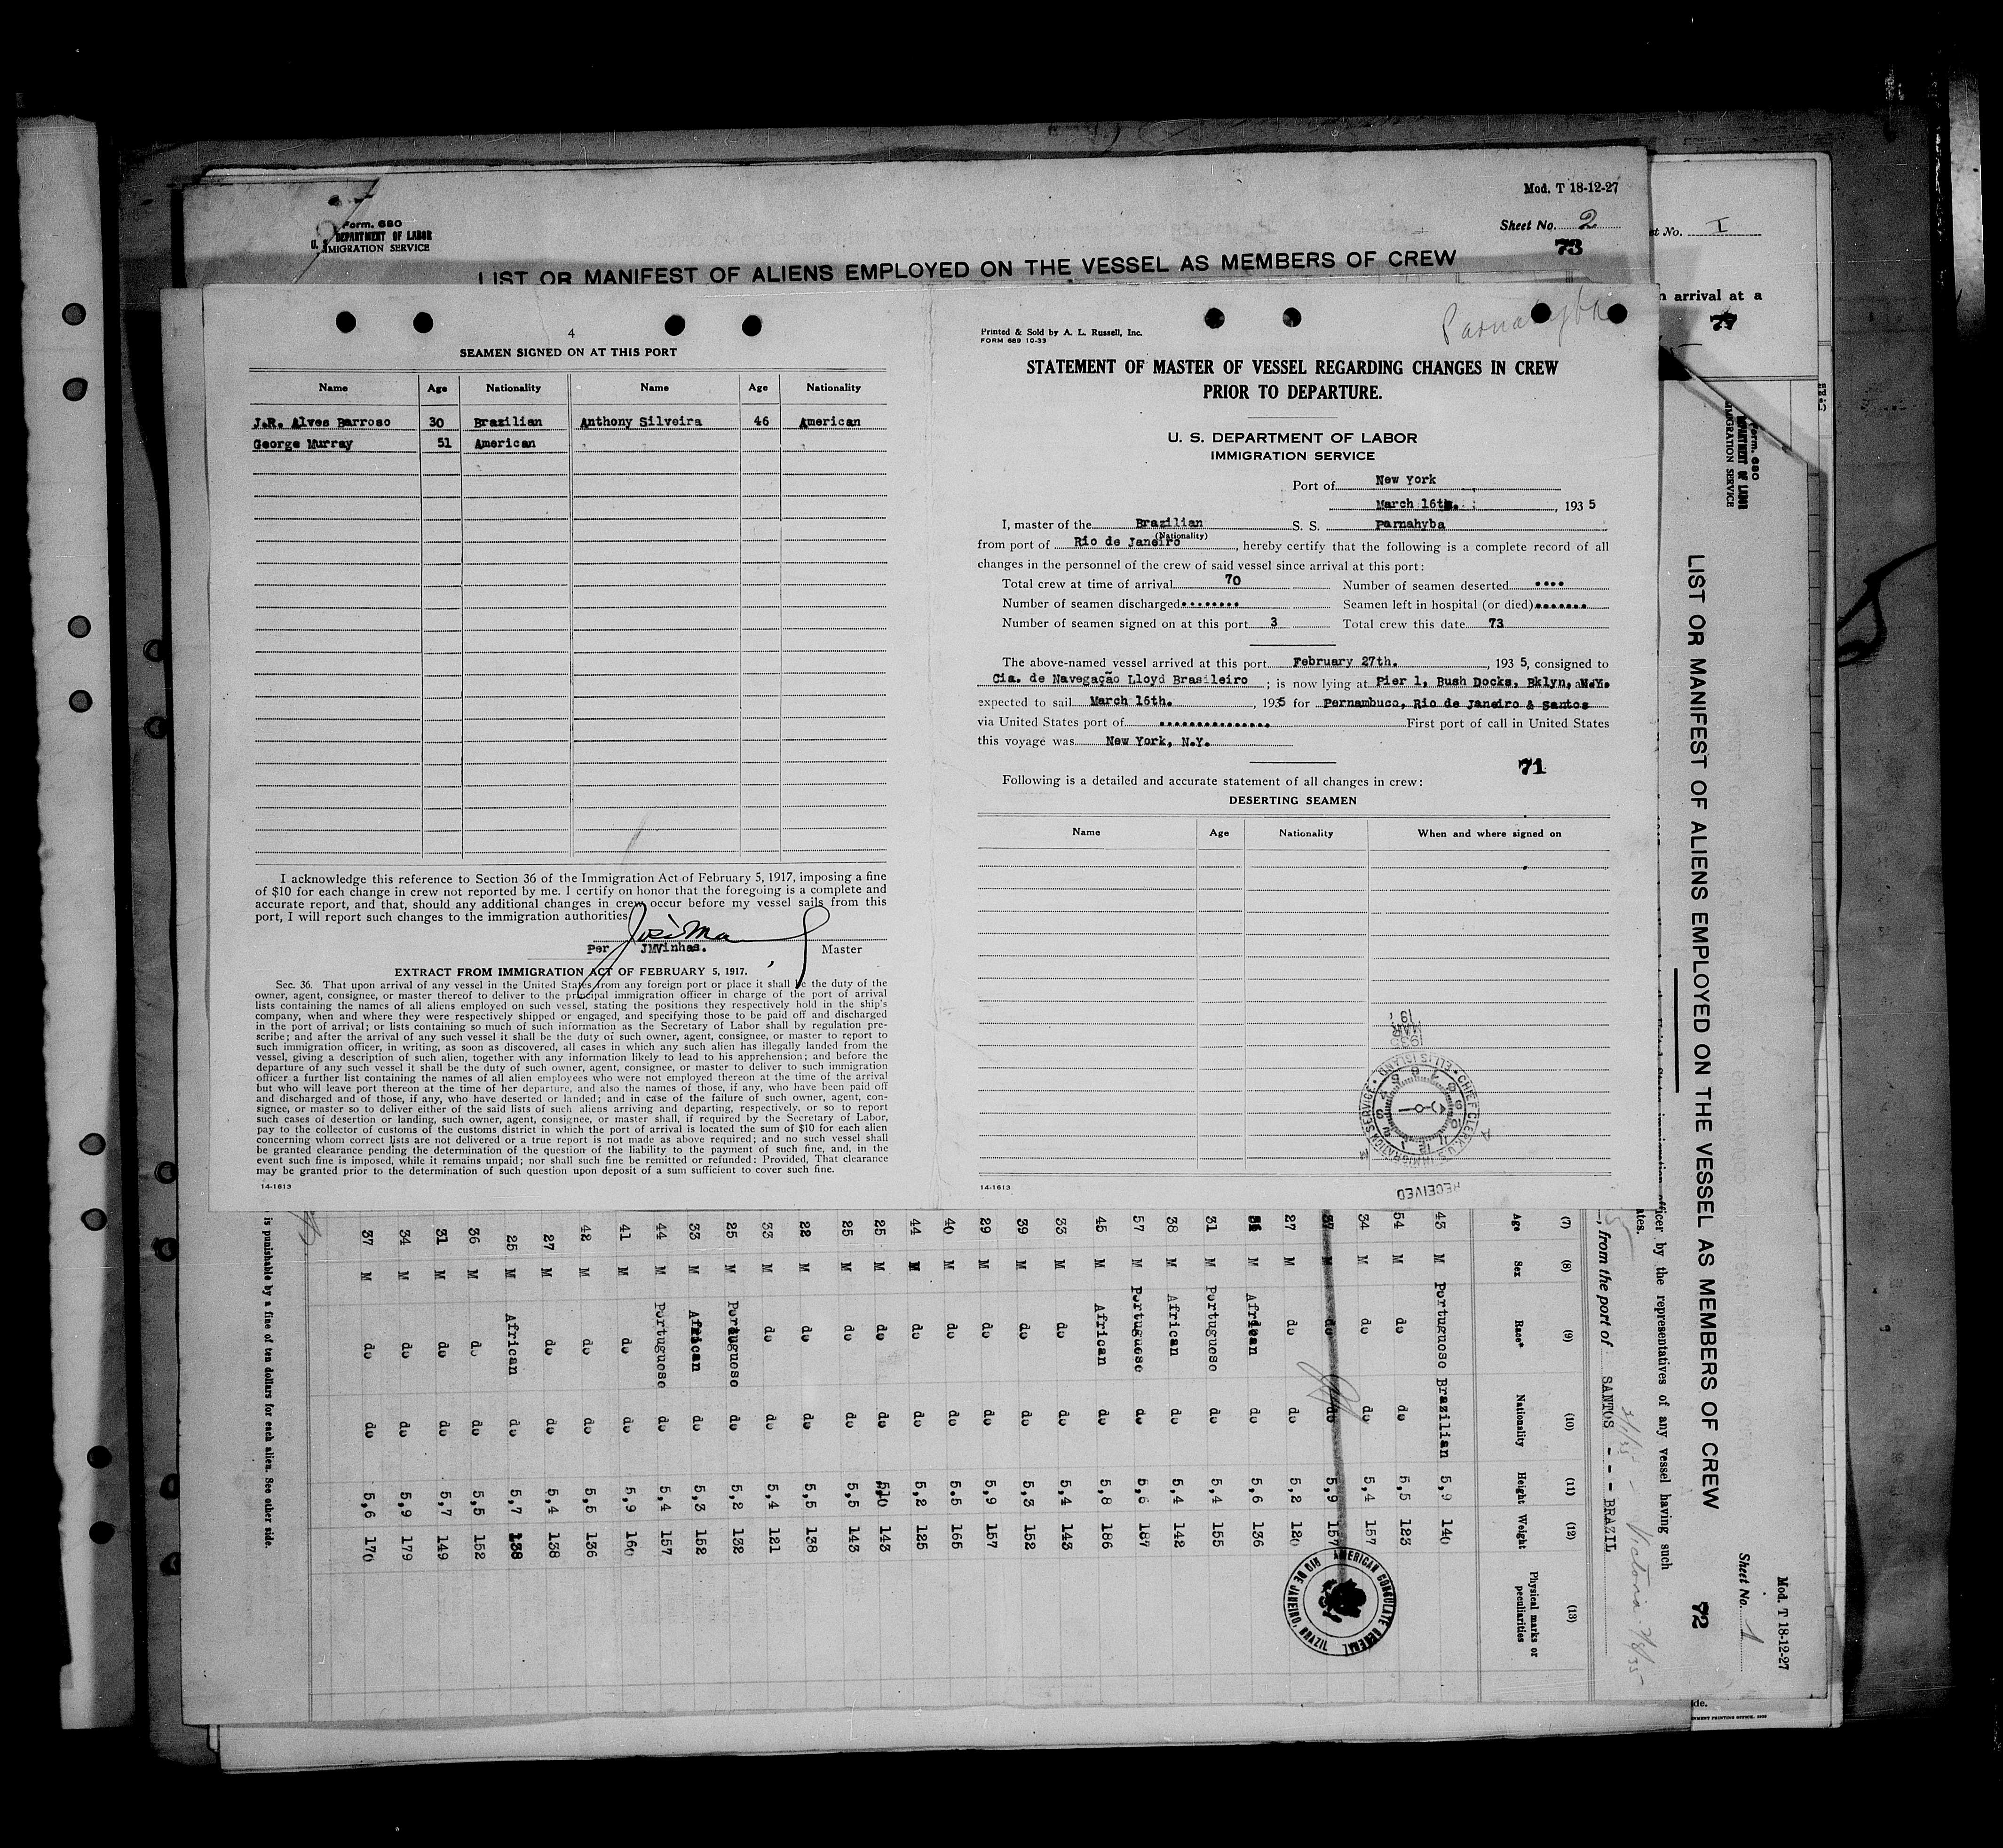 Mod. T 18-12-27
Sheet No. 2
73
Form. 680
U. S. DEPARTMENT OF LABOR
IMMIGRATION SERVICE
LIST OR MANIFEST OF ALIENS EMPLOYED ON THE VESSEL AS MEMBERS OF CREW
4
SEAMEN SIGNED ON AT THIS PORT
Name Age Nationality Name Age Nationality
J.R. Alves Barroso 30 Brazilian Anthony Silveira 46 American
George Murray 51 American
I acknowledge this reference to Section 36 of the Immigration Act of February 5, 1917, imposing a fine
of $10 for each change in crew not reported by me. I certify on honor that the foregoing is a complete and
accurate report, and that, should any additional changes in crew occur before my vessel sails from this
port, I will report such changes to the immigration authorities
Per JMVinhas. Master
EXTRACT FROM IMMIGRATION ACT OF FEBRUARY 5, 1917.
Sec. 36. That upon arrival of any vessel in the United States from any foreign port or place it shall be the duty of the
owner, agent, consignee, or master thereof to deliver to the principal immigration officer in charge of the port of arrival
lists containing the names of all aliens employed on such vessel, stating the positions they respectively hold in the ship's
company, when and where they were respectively shipped or engaged, and specifying those to be paid off and discharged
in the port of arrival; or lists containing so much of such information as the Secretary of Labor shall by regulation pre-
scribe; and after the arrival of any such vessel it shall be the duty of such owner, agent, consignee, or master to report to
such immigration officer, in writing, as soon as discovered, all cases in which any such alien has illegally landed from the
vessel, giving a description of such alien, together with any information likely to lead to his apprehension; and before the
departure of any such vessel it shall be the duty of such owner, agent, consignee, or master to deliver to such immigration
officer a further list containing the names of all alien employees who were not employed thereon at the time of the arrival
but who will leave port thereon at the time of her departure, and also the names of those, if any, who have been paid off
and discharged and of those, if any, who have deserted or landed; and in case of the failure of such owner, agent, con-
signee, or master so to deliver either of the said lists of such aliens arriving and departing, respectively, or so to report
such cases of desertion or landing, such owner, agent, consignee, or master shall, if required by the Secretary of Labor,
pay to the collector of customs of the customs district in which the port of arrival is located the sum of $10 for each alien
concerning whom correct lists are not delivered or a true report is not made as above required; and no such vessel shall
be granted clearance pending the determination of the question of the liability to the payment of such fine, and, in the
event such fine is imposed, while it remains unpaid; nor shall such fine be remitted or refunded: Provided, That clearance
may be granted prior to the determination of such question upon deposit of a sum sufficient to cover such fine.
14-1613
Parnahyba
Printed & Sold by A. L. Russell, Inc.
FORM 689 10-33
STATEMENT OF MASTER OF VESSEL REGARDING CHANGES IN CREW
PRIOR TO DEPARTURE.
U. S. DEPARTMENT OF LABOR
IMMIGRATION SERVICE
Port of New York
March 16th. , 193 5
I, master of the Brazilian S. S. Parnahyba
(Nationality)
from port of Rio de Janeiro , hereby certify that the following is a complete record of all
changes in the personnel of the crew of said vessel since arrival at this port:
Total crew at time of arrival 70 Number of seamen deserted ....
Number of seamen discharged ........ Seamen left in hospital (or died) .......
Number of seamen signed on at this port 3 Total crew this date 73
The above-named vessel arrived at this port February 27th. , 193 5, consigned to
Cia. de Navegação Lloyd Brasileiro ; is now lying at Pier 1, Bush Docks, Bklyn, N.Y.
expected to sail March 16th. , 1935 for Pernambuco, Rio de Janeiro & Santos
via United States port of ............... First port of call in United States
this voyage was New York, N.Y.
71
Following is a detailed and accurate statement of all changes in crew:
DESERTING SEAMEN
Name Age Nationality When and where signed on
1935
MAR
19
CHIEF CLERK U.S. IMMIGRATION SERVICE • ELLIS ISLAND
RECEIVED
14-1613
t No. I
n arrival at a
Form. 680
DEPARTMENT OF LABOR
IMMIGRATION SERVICE
Mod. T 18-12-27
Sheet No. 1
72
LIST OR MANIFEST OF ALIENS EMPLOYED ON THE VESSEL AS MEMBERS OF CREW
officer by the representatives of any vessel having such
, from the port of SANTOS - - - BRAZIL
Victoria 2/8/35
(7) (8) (9) (10) (11) (12) (13)
Age Sex Race* Nationality Height Weight Physical marks or peculiarities
43 M Portuguese Brazilian 5,9 140
54 M do do 5,5 123
34 M do do 5,4 157
37 M do do 5,9 157
27 M do do 5,2 120
M African do 5,6 136
31 M Portuguese do 5,4 155
38 M African do 5,4 142
57 M Portuguese do 5,6 187
45 M African do 5,8 186
33 M do do 5,4 143
39 M do do 5,3 152
29 M do do 5,9 157
40 M do do 5.5 165
44 M do do 5,2 125
25 M do do 5,10 143
25 M do do 5,5 143
22 M do do 5,5 138
33 M do do 5,4 121
25 M Portuguese do 5,2 132
33 M African do 5,3 152
44 M Portuguese do 5,4 157
41 M do do 5,9 160
42 M do do 5,5 136
27 M do do 5,4 138
25 M African do 5,7 138
36 M do do 5,5 152
31 M do do 5,7 149
34 M do do 5,9 179
37 M do do 5,6 170
AMERICAN CONSULATE GENERAL
RIO DE JANEIRO, BRAZIL
is punishable by a fine of ten dollars for each alien. See other side.